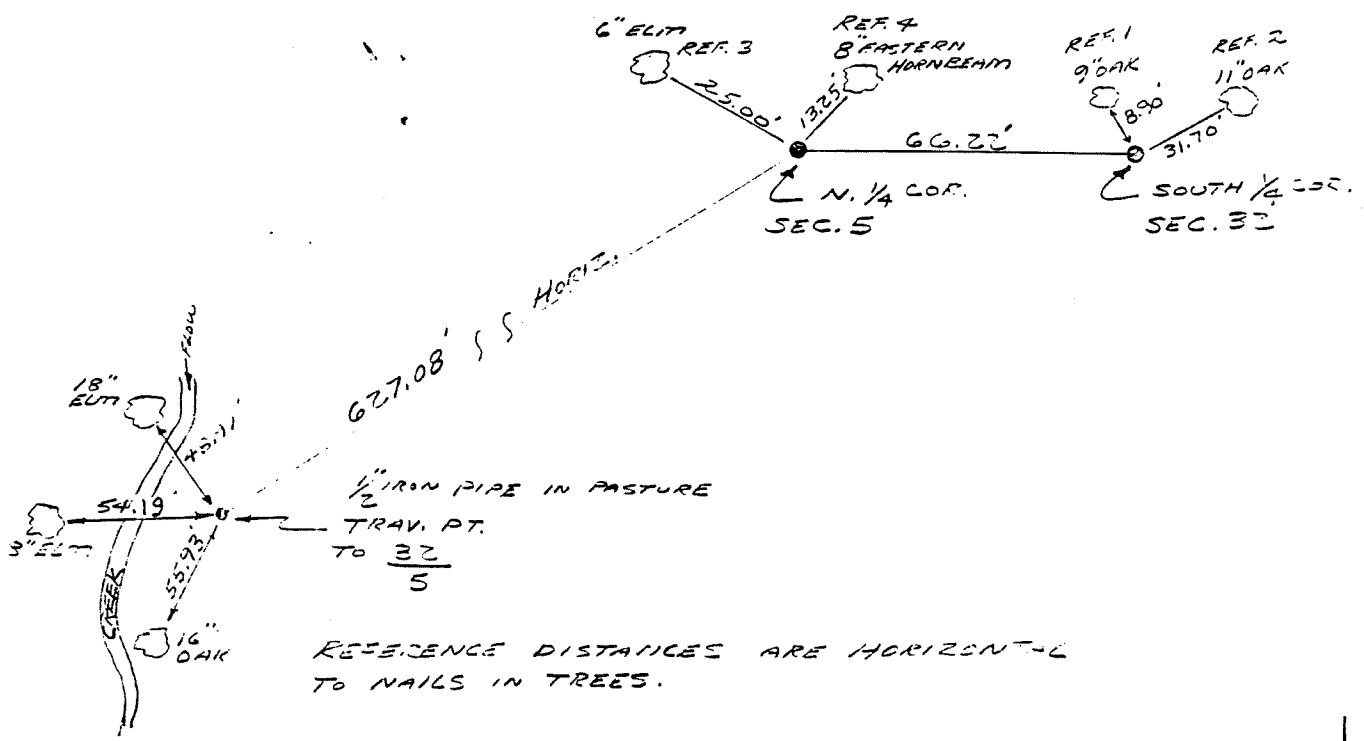 6" ELM
REF. 3
REF. 4
8" EASTERN
HORNBEAM
REF. 1
9" OAK
REF. 2
11" OAK
25.00'
13.25'
8.90'
31.70'
66.22'
N. 1/4 COR.
SEC. 5
SOUTH 1/4 COR.
SEC. 32
627.08' HORIZ.
FLOW
18"
ELM
54.19'
ELM
55.93'
CREEK
16"
OAK
1/2" IRON PIPE IN PASTURE
TRAV. PT.
TO 32
5
REFERENCE DISTANCES ARE HORIZONTAL
TO NAILS IN TREES.